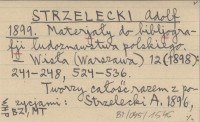 STRZELECKI Adolf
1899. Materjały do bibljogra-
fji ludoznawstwa polskiego.
Wisła (Warszawa) 12 (1898):
241-248, 524-536.
Tworzy całość razem z po-
zycjami: Strzelecki A. 1896,
BZ, MT
WHP